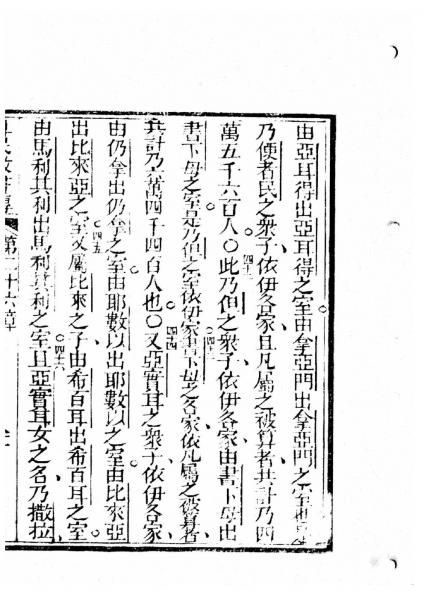 由亞耳得出亞耳得之室由拿亞門出拿亞門之室也
四一 乃便者民之衆子依伊各家且凡屬之被算者共計乃四
萬五千六百人〇四二 此乃但之衆子依伊各家由書下母出
書下母之室是乃但之室依伊家四三 書下母之各家依凡屬之被算者
共計乃六萬四千四百人也〇四四 又亞實耳之衆子依伊各家
由仍拿出仍拿之室由耶數以出耶數以之室由比來亞
出比來亞之室四五 又屬比來之子由希百耳出希百耳之室
由馬利其利出馬利其利之室四六 且亞實耳女之名乃撒拉
第二十六章